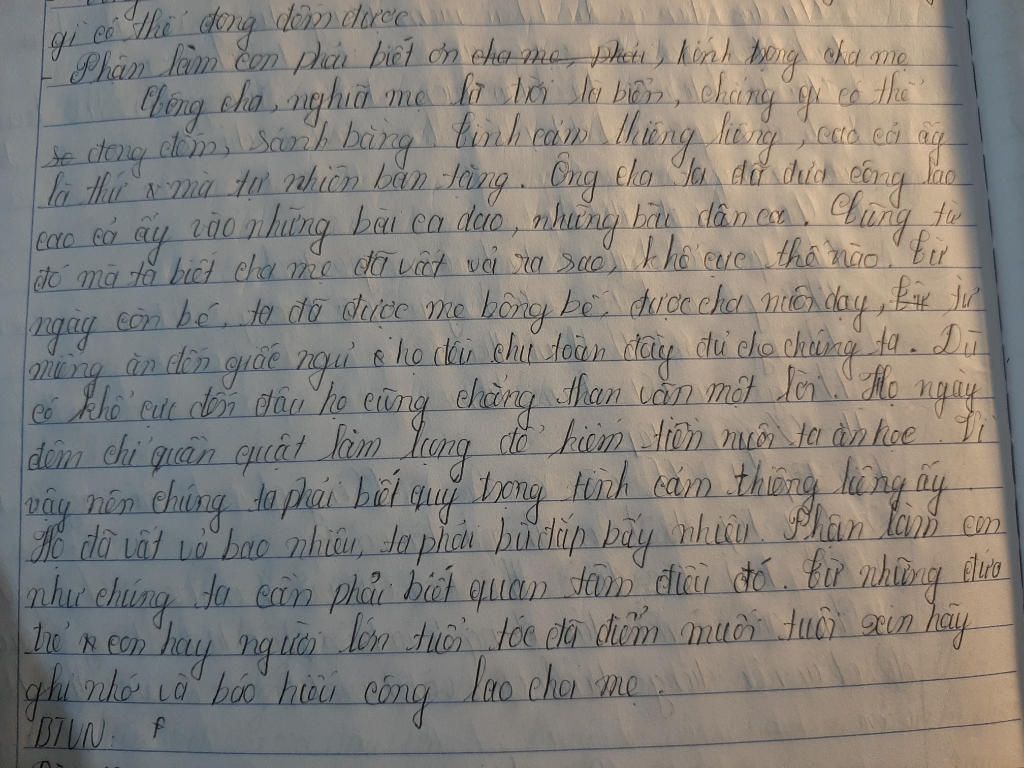 gì có thể đong đếm được
- Phận làm con phải biết ơn cha mẹ, phải, kính trọng cha mẹ
Công cha, nghĩa mẹ là trời là biển, chẳng gì có thể
so đong đếm, sánh bằng. Tình cảm thiêng liêng, cao cả ấy
là thứ mà tự nhiên ban tặng. Ông cha ta đã đưa công lao
cao cả ấy vào những bài ca dao, những bài dân ca. Cũng từ
đó mà ta biết cha mẹ đã vất vả ra sao, khổ cực thế nào. Từ
ngày còn bé, ta đã được mẹ bồng bế, được cha nuôi dạy, từ từ
miếng ăn đến giấc ngủ họ đều chu toàn đầy đủ cho chúng ta. Dù
có khổ cực đến đâu họ cũng chẳng than vãn một lời. Họ ngày
đêm chỉ quần quật làm lụng để kiếm tiền nuôi ta ăn học. Vì
vậy nên chúng ta phải biết quý trọng tình cảm thiêng liêng ấy.
Họ đã vất vả bao nhiêu, ta phải bù đắp bấy nhiêu. Phận làm con
như chúng ta cần phải biết quan tâm điều đó. Từ những đứa
trẻ con hay người lớn tuổi tóc đã điểm muối tuổi xin hãy
ghi nhớ và báo hiếu công lao cha mẹ.
BTVN: